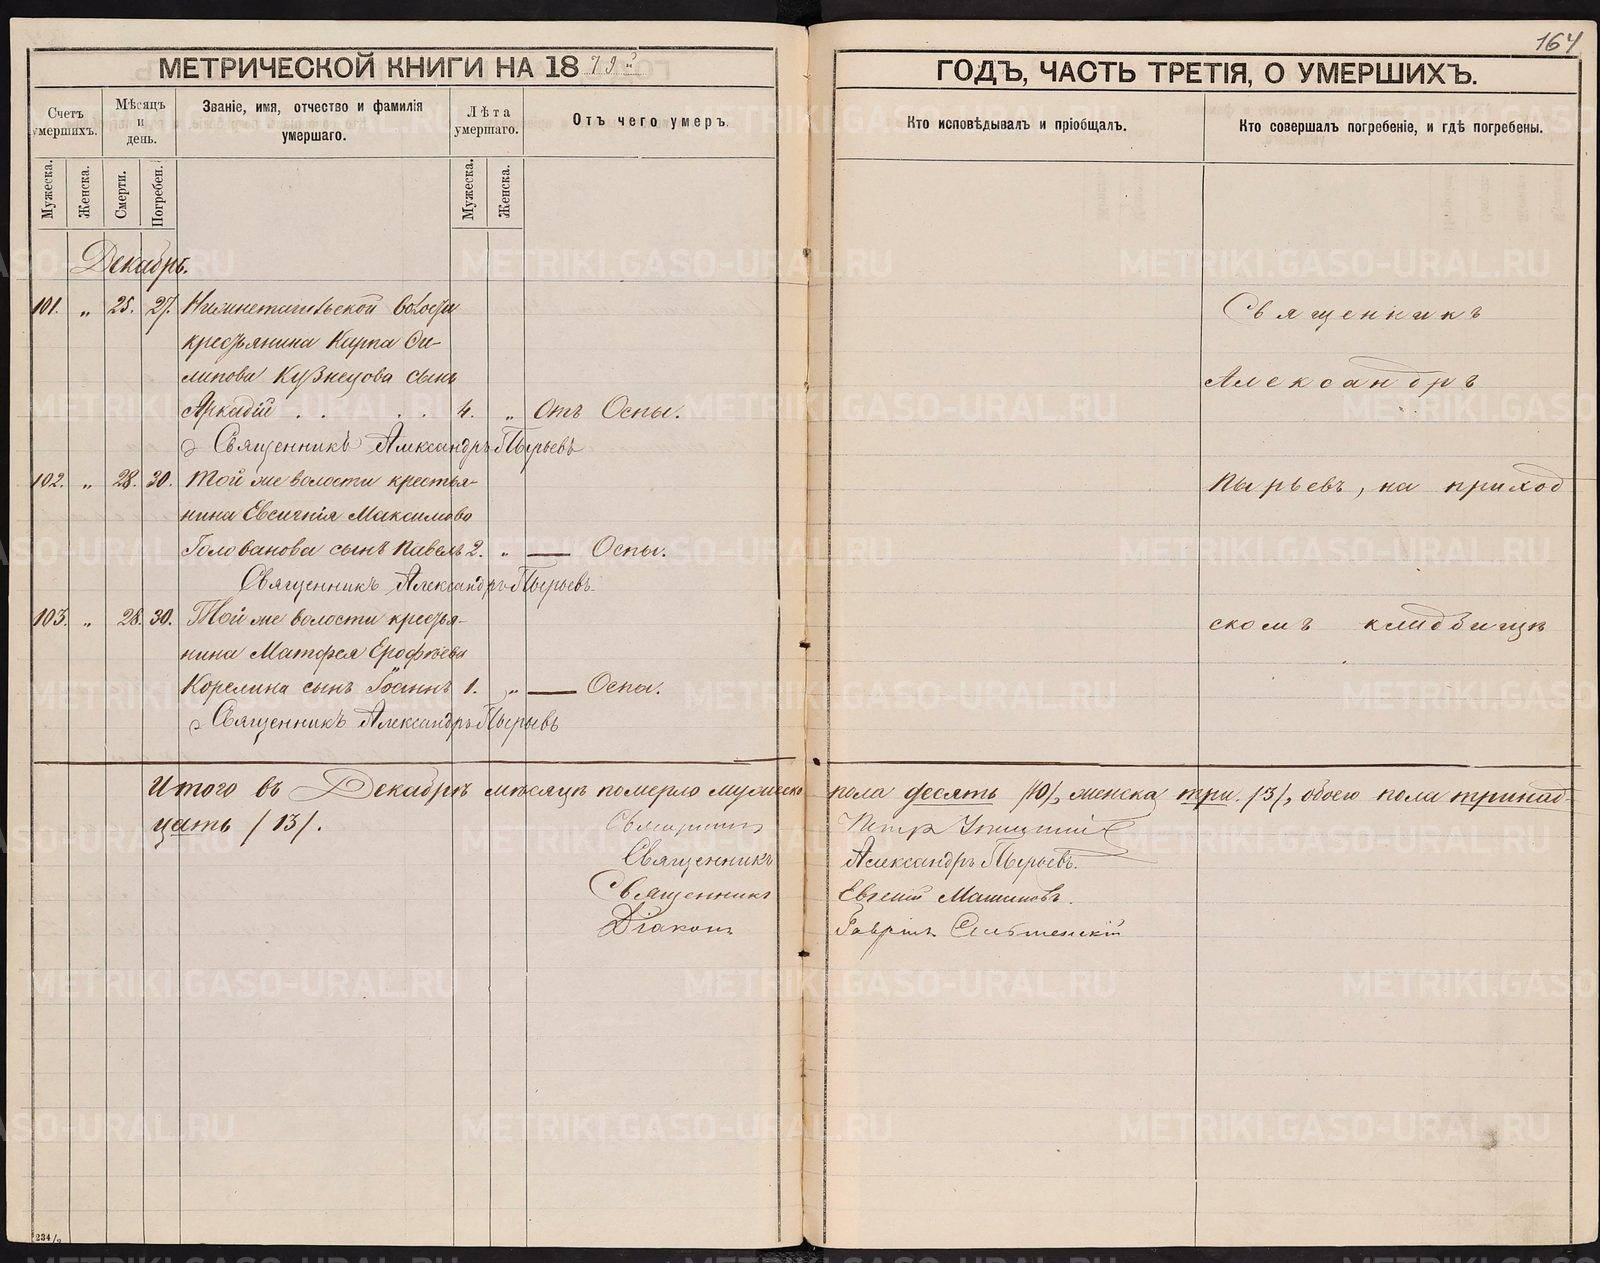 164
МЕТРИЧЕСКОЙ КНИГИ НА 1879й
ГОДЪ, ЧАСТЬ ТРЕТІЯ, О УМЕРШИХЪ.
Счетъ умершихъ.
Мѣсяцъ и день.
Званіе, имя, отчество и фамилія умершаго.
Лѣта умершаго.
Отъ чего умеръ.
Кто исповѣдывалъ и пріобщалъ.
Кто совершалъ погребеніе, и гдѣ погребены.
Мужеска.
Женска.
Смерти.
Погребен.
Мужеска.
Женска.
Декабрь.
101. „ 25. 27. Нижнетагильской волости
крестьянина Карпа Фи-
липова Кузнецова сынъ
Аркадій . . . . 4. „ Отъ Оспы.
Священникъ Александръ Пырьевъ
102. „ 28. 30. Той же волости крестья-
нина Евсигнія Максимова
Голованова сынъ Павелъ 2. „ — Оспы.
Священникъ Александръ Пырьевъ.
103. „ 28. 30. Той же волости крестья-
нина Матфея Ерофѣева
Корелина сынъ Іоаннъ 1. „ — Оспы.
Священникъ Александръ Пырьевъ
Священникъ
Александръ
Пырьевъ, на приход
скомъ кладбищѣ
Итого въ Декабрѣ мѣсяцѣ померло мужеска пола десять /10/, женска три. /3/, обоего пола тринад-
цать /13/.
Священникъ Петръ
Священникъ Александръ Пырьевъ.
Священникъ Евгеній
Діаконъ Гавріилъ
234/3
METRIKI.GASO-URAL.RU